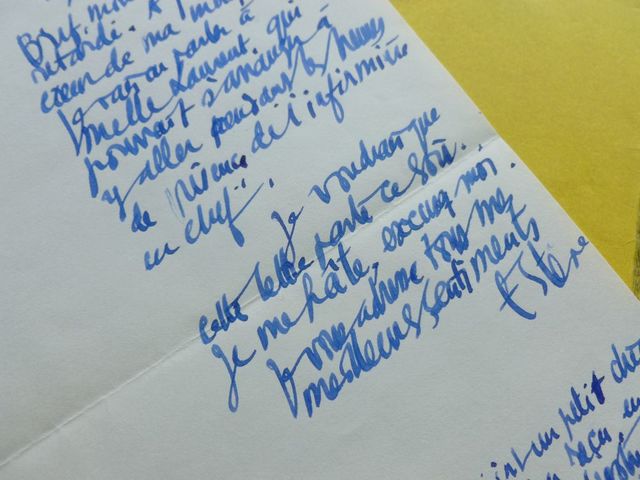 Bref, mon
retardé. A
cœur de ma
parler à
Melle Laurent, qui
pourrait s'arranger à
y aller pendant les heures
de présence de l'infirmière
en chef.
Je voudrais que
cette lettre parte ce soir.
Je me hâte, excusez moi.
Je vous adresse tous mes
meilleurs sentiments
un petit
reçu, en